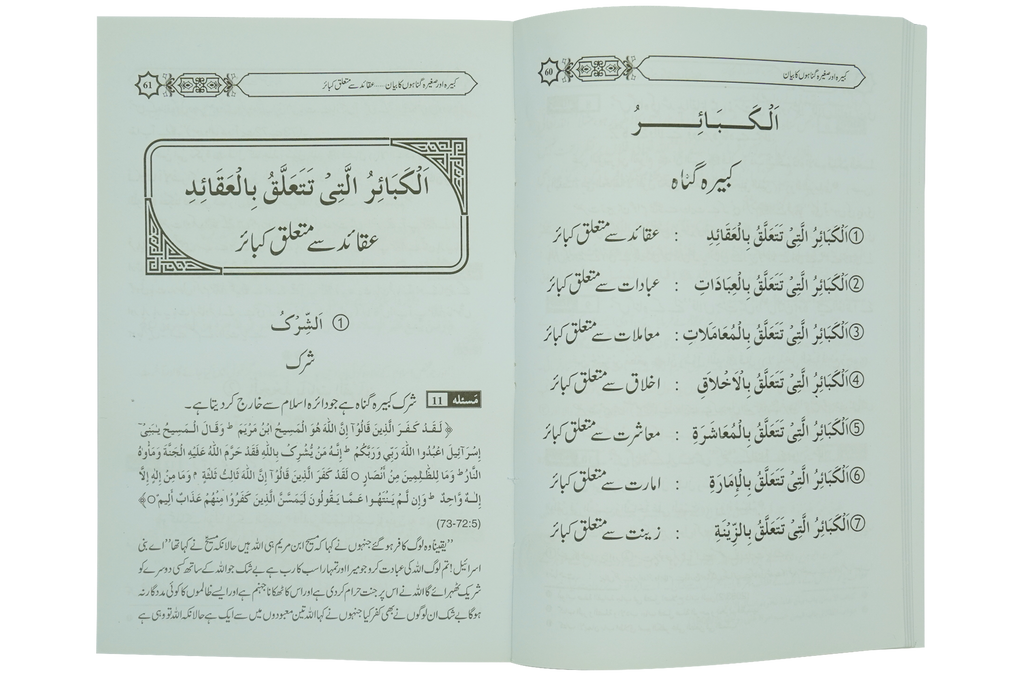 کبیرہ اور صغیرہ گناہوں کا بیان
60
اَلْکَبَائِرُ
کبیرہ گناہ
①اَلْکَبَائِرُ الَّتِیْ تَتَعَلَّقُ بِالْعَقَائِدِ : عقائد سے متعلق کبائر
②اَلْکَبَائِرُ الَّتِیْ تَتَعَلَّقُ بِالْعِبَادَاتِ : عبادات سے متعلق کبائر
③اَلْکَبَائِرُ الَّتِیْ تَتَعَلَّقُ بِالْمُعَامَلَاتِ : معاملات سے متعلق کبائر
④اَلْکَبَائِرُ الَّتِیْ تَتَعَلَّقُ بِالْاَخْلَاقِ : اخلاق سے متعلق کبائر
⑤اَلْکَبَائِرُ الَّتِیْ تَتَعَلَّقُ بِالْمُعَاشَرَةِ : معاشرت سے متعلق کبائر
⑥اَلْکَبَائِرُ الَّتِیْ تَتَعَلَّقُ بِالْاِمَارَةِ : امارت سے متعلق کبائر
⑦اَلْکَبَائِرُ الَّتِیْ تَتَعَلَّقُ بِالزِّیْنَةِ : زینت سے متعلق کبائر
کبیرہ اور صغیرہ گناہوں کا بیان — عقائد سے متعلق کبائر
61
اَلْکَبَائِرُ الَّتِیْ تَتَعَلَّقُ بِالْعَقَائِدِ
عقائد سے متعلق کبائر
① اَلشِّرْکُ
شرک
مَسئلہ 11 شرک کبیرہ گناہ ہے جو دائرہ اسلام سے خارج کر دیتا ہے۔
﴿ لَقَدْ کَفَرَ الَّذِیْنَ قَالُوْٓا اِنَّ اللّٰهَ هُوَ الْمَسِیْحُ ابْنُ مَرْیَمَ ط وَقَالَ الْمَسِیْحُ یٰبَنِیْٓ
اِسْرَآئِیْلَ اعْبُدُوا اللّٰهَ رَبِّیْ وَرَبَّکُمْ ط اِنَّهٗ مَنْ یُّشْرِکْ بِاللّٰهِ فَقَدْ حَرَّمَ اللّٰهُ عَلَیْهِ الْجَنَّةَ وَمَاْوٰهُ
النَّارُ ط وَمَا لِلظّٰلِمِیْنَ مِنْ اَنْصَارٍ ○ لَقَدْ کَفَرَ الَّذِیْنَ قَالُوْٓا اِنَّ اللّٰهَ ثَالِثُ ثَلٰثَةٍ م وَمَا مِنْ اِلٰهٍ اِلَّآ
اِلٰهٌ وَّاحِدٌ ط وَاِنْ لَّمْ یَنْتَهُوْا عَمَّا یَقُوْلُوْنَ لَیَمَسَّنَّ الَّذِیْنَ کَفَرُوْا مِنْهُمْ عَذَابٌ اَلِیْمٌ ○﴾
(73-72:5)
”یقیناً وہ لوگ کافر ہو گئے جنہوں نے کہا کہ مسیح ابن مریم ہی اللہ ہیں حالانکہ مسیح نے کہا تھا”اے بنی
اسرائیل! تم لوگ اللہ کی عبادت کرو جو میرا اور تمہارا سب کا رب ہے بے شک جو اللہ کے ساتھ کسی دوسرے کو
شریک ٹھہرائے گا اللہ نے اس پر جنت حرام کر دی ہے اور اس کا ٹھکانا جہنم ہے اور ایسے ظالموں کا کوئی مددگار نہ
ہوگا بے شک ان لوگوں نے بھی کفر کیا جنہوں نے کہا اللہ تین معبودوں میں سے ایک ہے حالانکہ اللہ تو وہی ہے